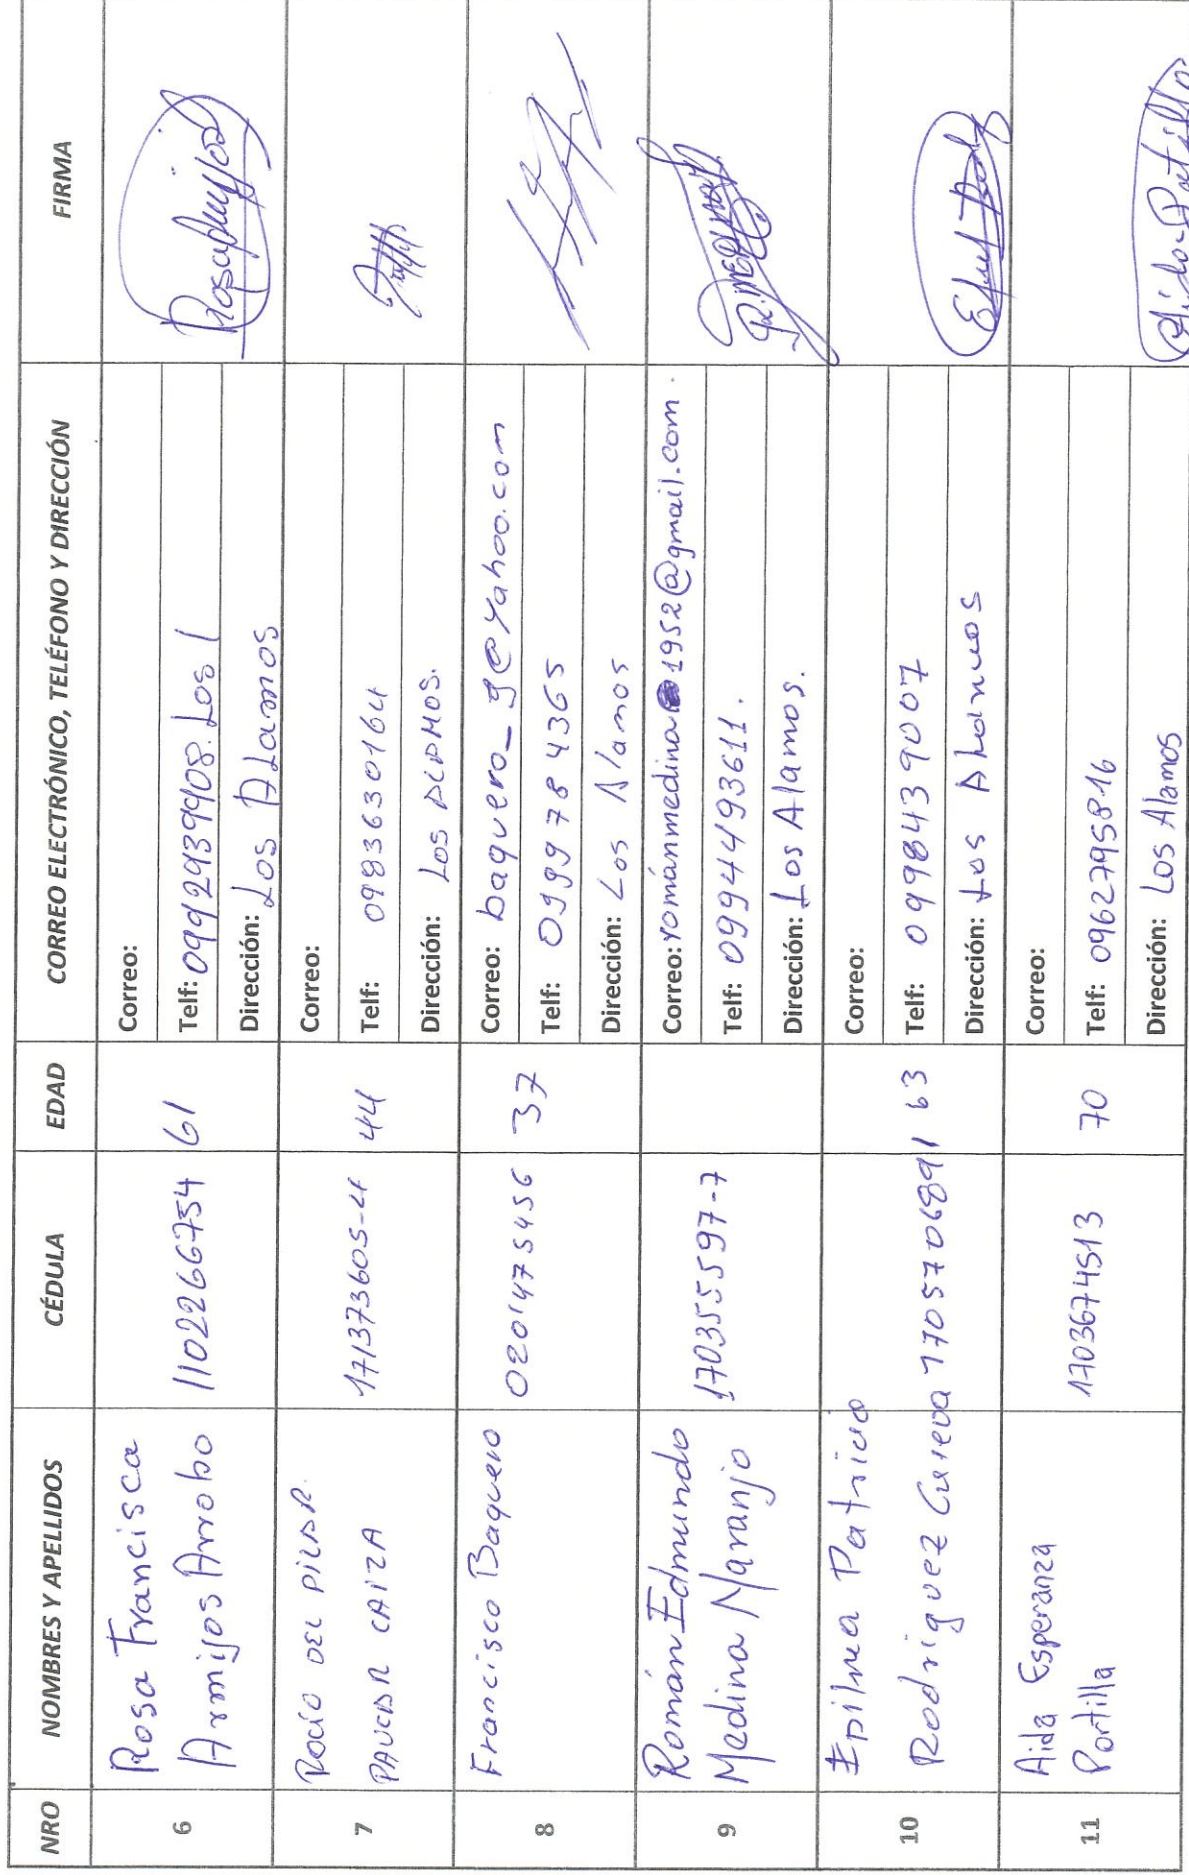 NRO NOMBRES Y APELLIDOS CÉDULA EDAD CORREO ELECTRÓNICO, TELÉFONO Y DIRECCIÓN FIRMA
6
Rosa Francisca
Armijos Arrobo
1102266754
61
Correo:
Telf: 0992939908. Los
Dirección: Los ALamos
7
Rocío DEL PILAR
PAUCAR CAIZA
171373605-4
44
Correo:
Telf: 0983630164
Dirección: Los ALAMOS.
8
Francisco Baquero
0201475456
37
Correo: baquero_g@yahoo.com
Telf: 0999784365
Dirección: Los Alamos
9
Román Edmundo
Medina Naranjo
170355597-7
Correo: románmedina1952@gmail.com.
Telf: 0994493611.
Dirección: Los Alamos.
10
Patricio
Rodriguez Cueva
1705706891
63
Correo:
Telf: 0999843 9007
Dirección: Los
11
Aida Esperanza
Portilla
1703674513
70
Correo:
Telf: 0962795816
Dirección: Los Alamos
Aida Portilla